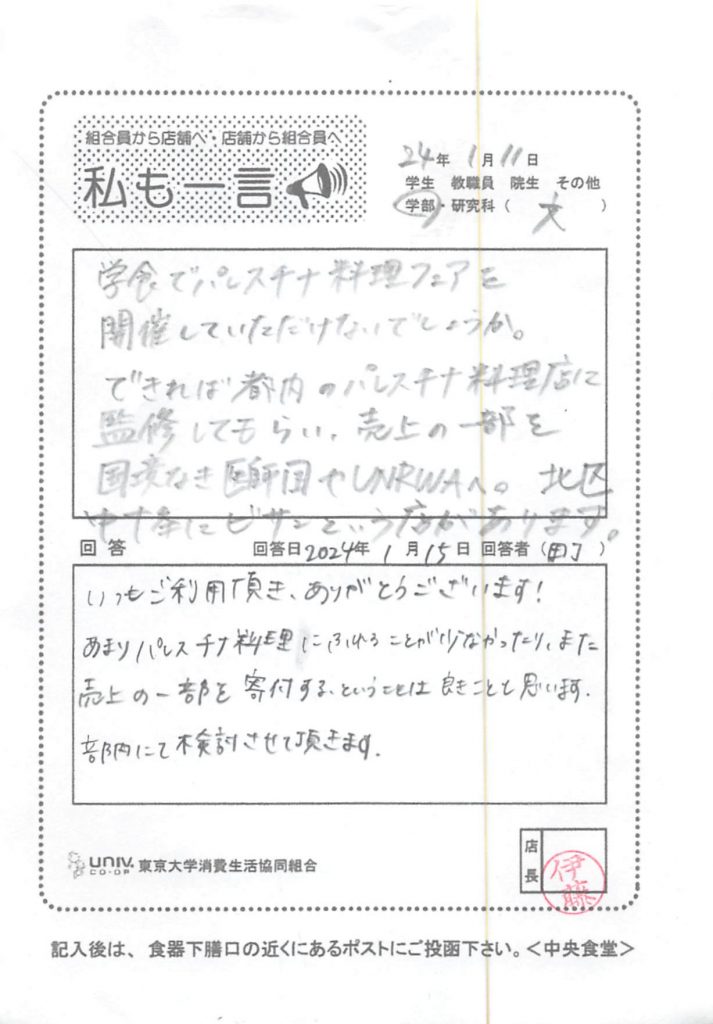 組合員から店舗へ・店舗から組合員へ
私も一言
24年 1月 11日
学生 教職員 院生 その他
学部・研究科( 文 )
学食でパレスチナ料理フェアを
開催していただけないでしょうか。
できれば都内のパレスチナ料理店に
監修してもらい、売上の一部を
国境なき医師団やUNRWAへ。北区
中十条にビサンという店があります。
回答 回答日2024年 1月15日 回答者(町)
いつもご利用頂き、ありがとうございます!
あまりパレスチナ料理にふれることが少なかったり、また
売上の一部を寄付する、ということは良きことと思います.
部内にて検討させて頂きます.
店長 伊藤
UNIV. CO-OP 東京大学消費生活協同組合
記入後は、食器下膳口の近くにあるポストにご投函下さい。<中央食堂>